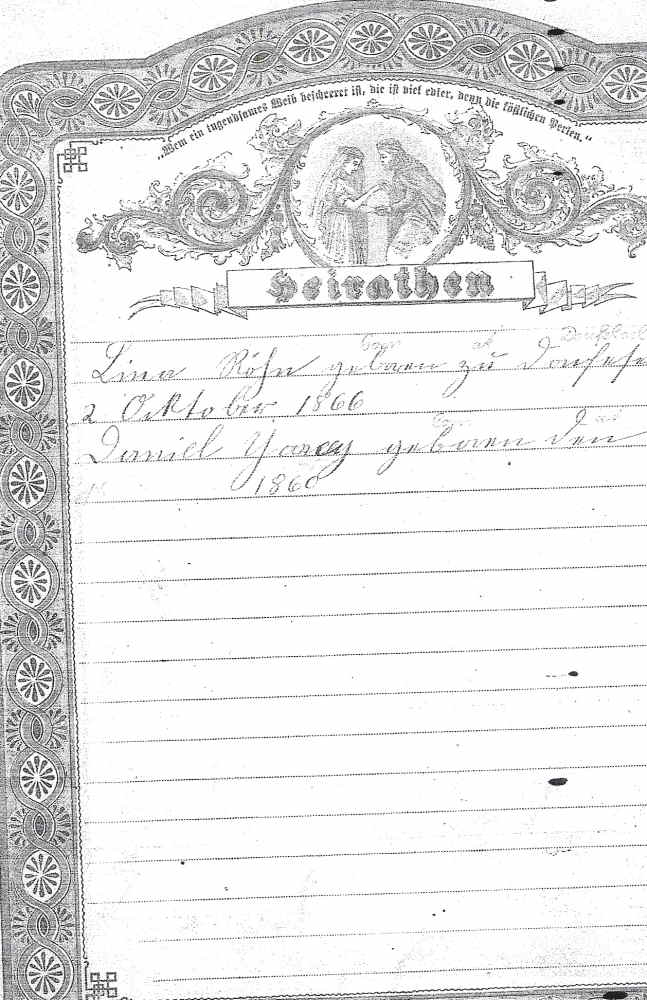 „Wem ein tugendsames Weib bescheeret ist, die ist viel edler, denn die köstlichen Perlen.“
Heirathen
Born at
Lina Röhn geboren zu
2 Oktober 1866
Born
Daniel geboren den
1860